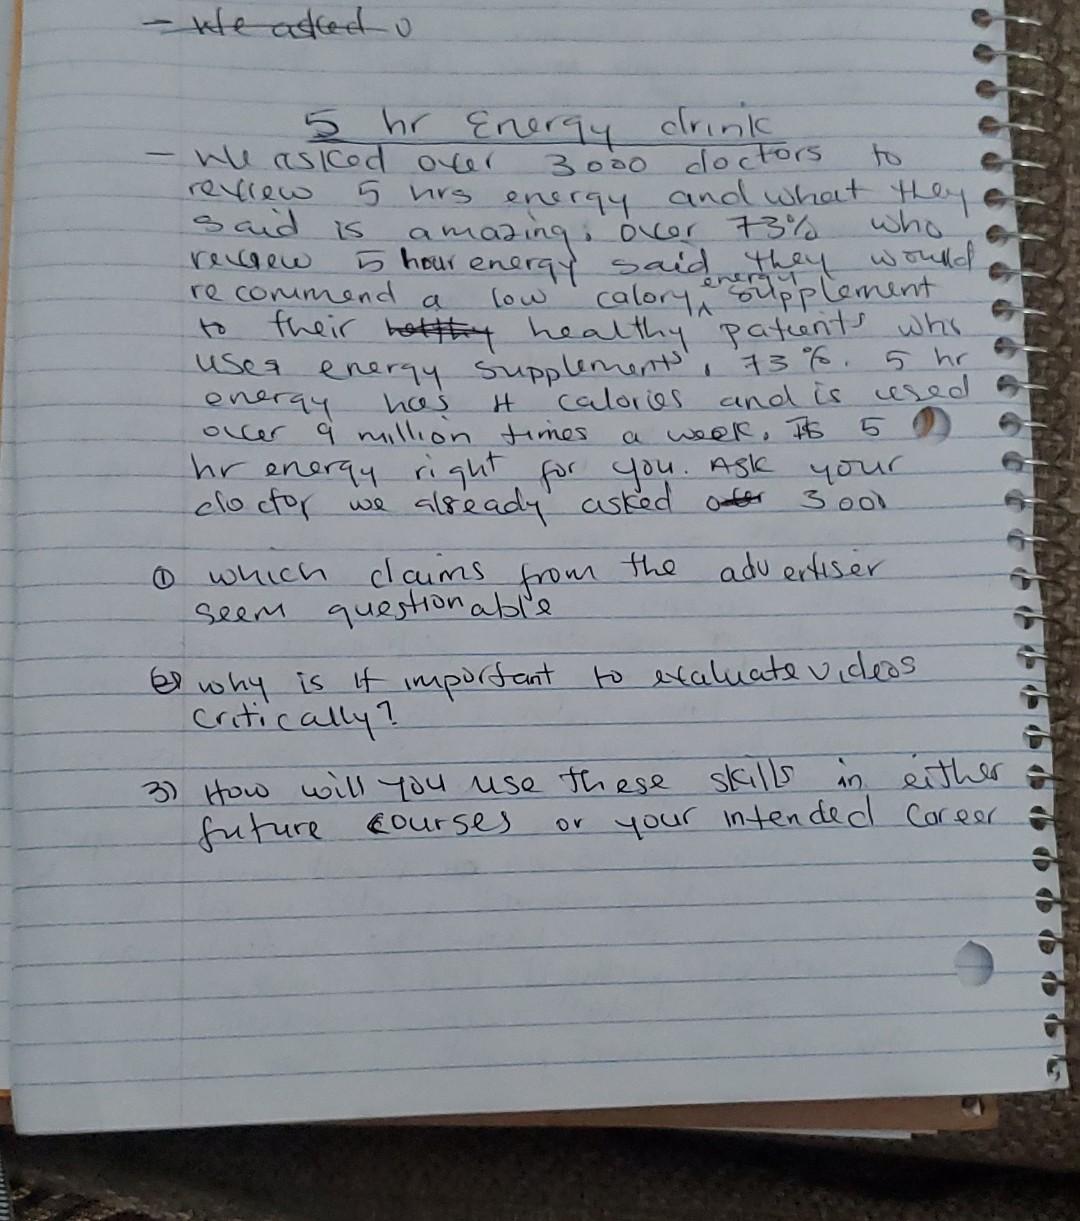 - We asked o
5 hr Energy drink
- We asked over 3000 doctors to
review 5 hrs energy and what they
said is amazing. Over 73% who
review 5 hour energy said they would
energy
recommend a low calory ^ supplement
to their healthy patients who
uses energy supplements, 73%. 5 hr
energy has 4 calories and is used
over 9 million times a week. Is 5
hr energy right for you. Ask your
doctor we already asked over 3000
① which claims from the advertiser
seem questionable
② why is it important to evaluate videos
critically?
3) How will you use these skills in either
future courses or your intended career